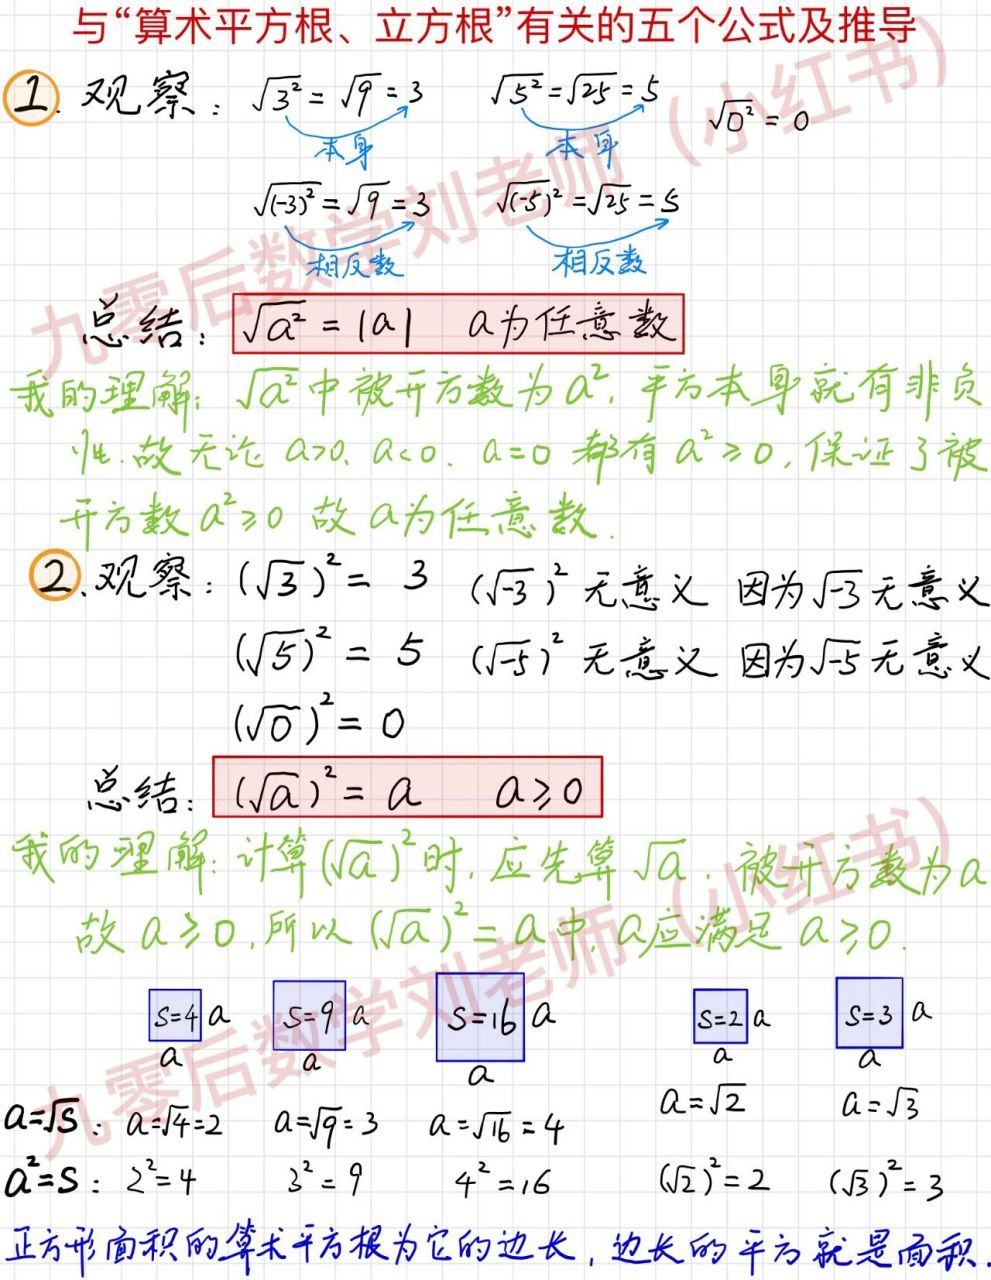 与“算术平方根、立方根”有关的五个公式及推导
1. 观察： √3² = √9 = 3 √5² = √25 = 5 √0² = 0
本身 本身
√(-3)² = √9 = 3 √(-5)² = √25 = 5
相反数 相反数
总结： √a² = |a| a为任意数
我的理解：√a² 中被开方数为a²，平方本身就有非负
性.故无论 a>0、a<0、a=0 都有 a²≥0，保证了被
开方数a²≥0 故a为任意数.
2、观察：(√3)² = 3 (√-3)² 无意义 因为√-3无意义
(√5)² = 5 (√-5)² 无意义 因为√-5无意义
(√0)² = 0
总结： (√a)² = a a≥0
我的理解：计算(√a)²时，应先算√a，被开方数为a
故a≥0，所以(√a)² = a中，a应满足a≥0.
S=4 a S=9 a S=16 a S=2 a S=3 a
a a a a a
a=√S： a=√4=2 a=√9=3 a=√16=4 a=√2 a=√3
a²=S： 2²=4 3²=9 4²=16 (√2)²=2 (√3)²=3
正方形面积的算术平方根为它的边长，边长的平方就是面积.
九零后数学刘老师（小红书）
九零后数学刘老师（小红书）